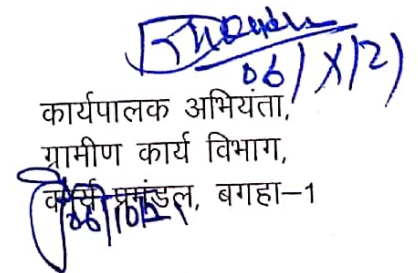 06/X/21
कार्यपालक अभियंता,
ग्रामीण कार्य विभाग,
कार्य प्रमंडल, बगहा-1
06/10/21